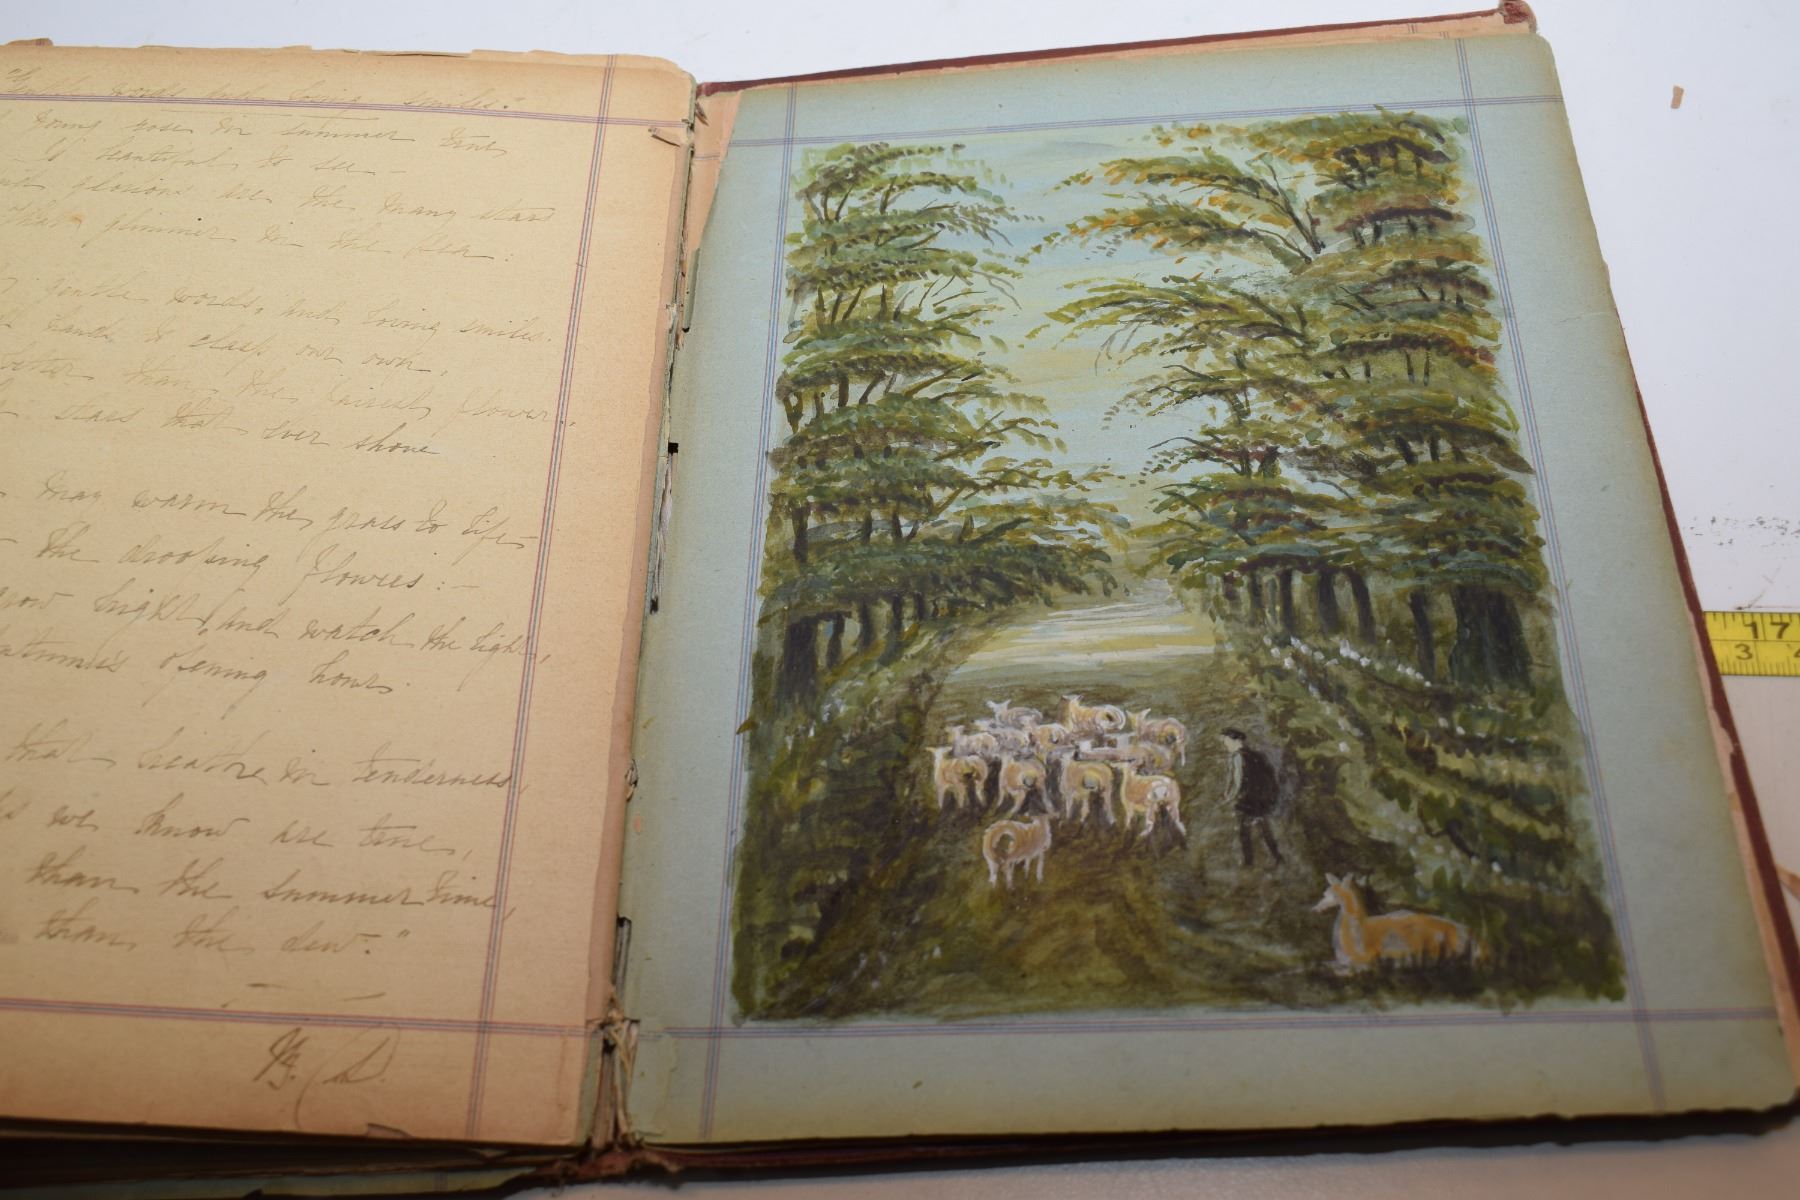 "Gentle words and loving smiles."
young rose in summer time
Is beautiful to see -
glorious are the many stars
That glimmer in the sea:
gentle words, and loving smiles.
hands to clasp our own,
better than the fairest flowers,
stars that ever shone
may warm the grass to life
the drooping flowers: -
grow bright, and watch the light,
autumn's opening hours.
that breathe in tenderness,
we know are true,
than the summer time,
than the dew."
17
3